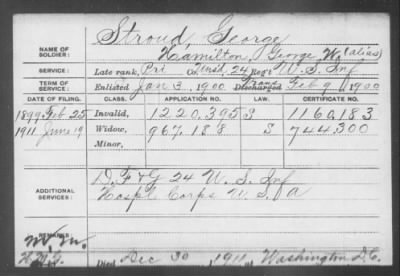 Stroud, George
NAME OF SOLDIER: Hamilton, George W. (alias)
SERVICE: Late rank, Pri Co. Unsd, 24 Reg't U.S. Inf
TERM OF SERVICE: Enlisted Jan 3, 1900 Discharged Trans Feb 9, 1900
DATE OF FILING. CLASS. APPLICATION NO. LAW. CERTIFICATE NO.
1899 Feb 25 Invalid, 1220,395 S 1160,183
1911 June 19 Widow, 967,188 S 744,300
Minor,
ADDITIONAL SERVICES: D, F & G 24 U.S. Inf
Hospl Corps U.S.A
REMARKS:
Died Dec 30, 1911, at Washington D.C.